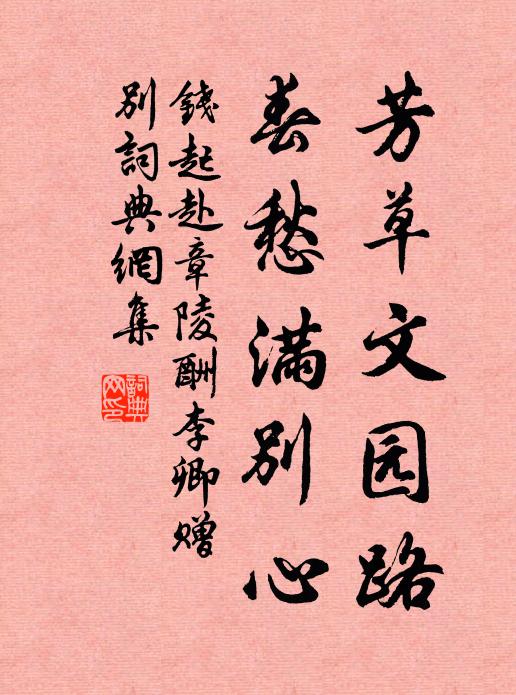 芳草文园路
春愁满别心
錢起赴章陵酬李卿赠
别詞典網集
詞典网印